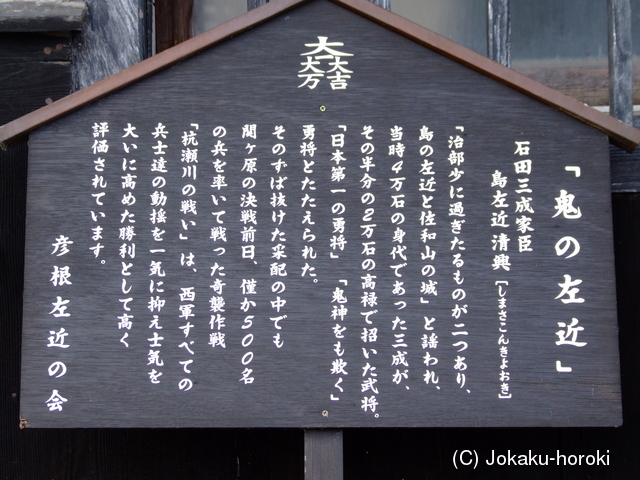 大一大万大吉
「鬼の左近」
石田三成家臣
島左近清興［しまさこんきよおき］
『治部少に過ぎたるものが二つあり、
島の左近と佐和山の城」と謡われ、
当時４万石の身代であった三成が、
その半分の２万石の高禄で招いた武将。
「日本第一の勇将」「鬼神をも欺く」
勇将とたたえられた。
そのずば抜けた采配の中でも
関ヶ原の決戦前日、僅か５００名
の兵を率いて戦った奇襲作戦
「杭瀬川の戦い」は、西軍すべての
兵士達の動揺を一気に抑え士気を
大いに高めた勝利として高く
評価されています。
彦根左近の会
(C) Jokaku-horoki